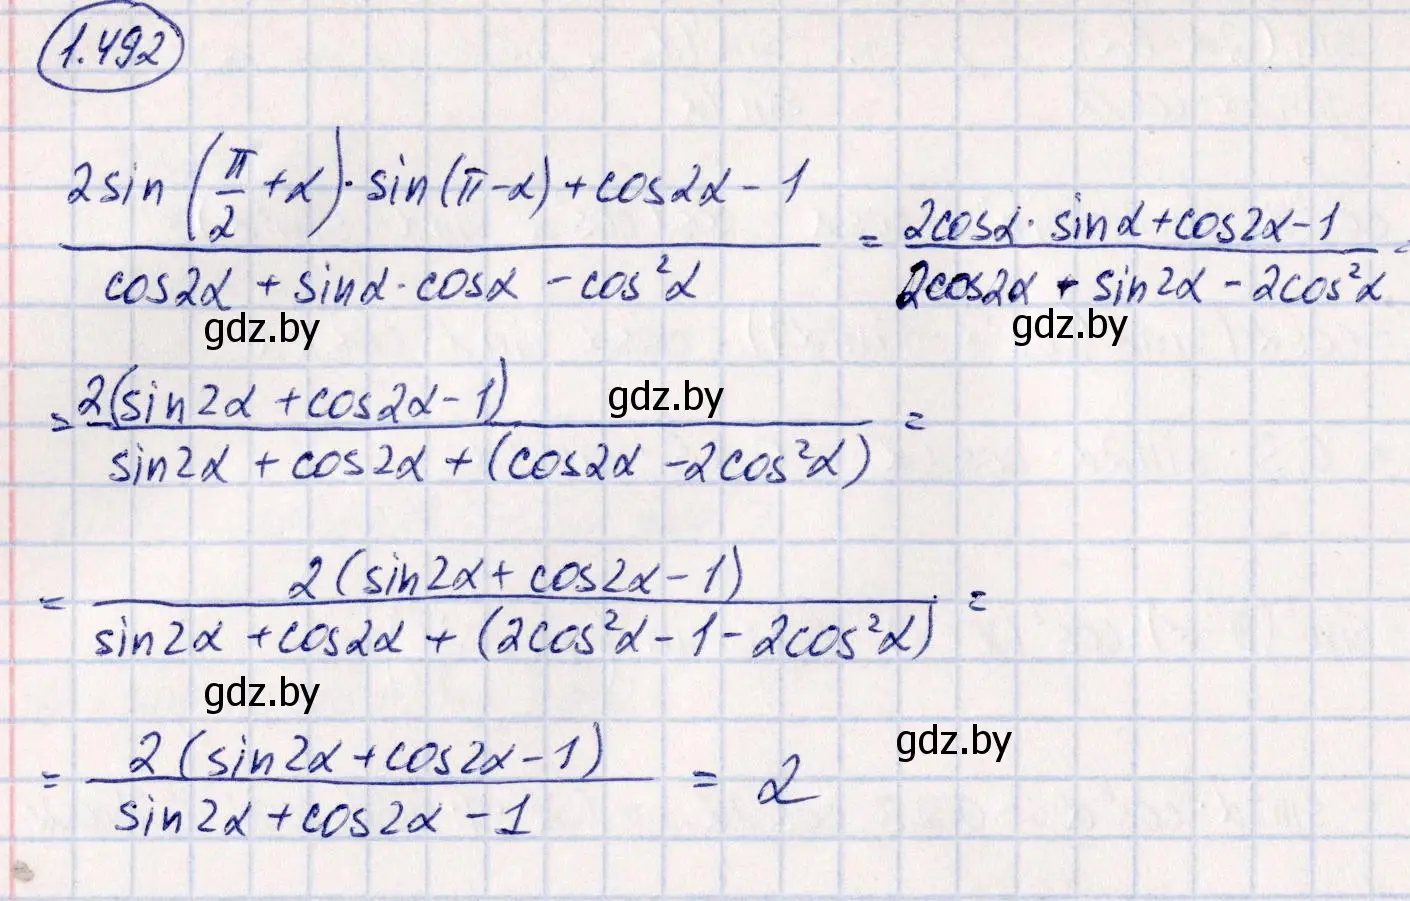 1.492
2sin(π/2 + α)·sin(π-α)+cos2α-1 / cos2α + sinα·cosα - cos²α = 2cosα·sinα+cos2α-1 / 2cos2α + sin2α - 2cos²α =
gdz.by
gdz.by
= 2(sin2α+cos2α-1) / sin2α + cos2α + (cos2α - 2cos²α) =
gdz.by
= 2(sin2α+cos2α-1) / sin2α+cos2α + (2cos²α-1-2cos²α) =
gdz.by
= 2(sin2α+cos2α-1) / sin2α+cos2α-1 = 2
gdz.by